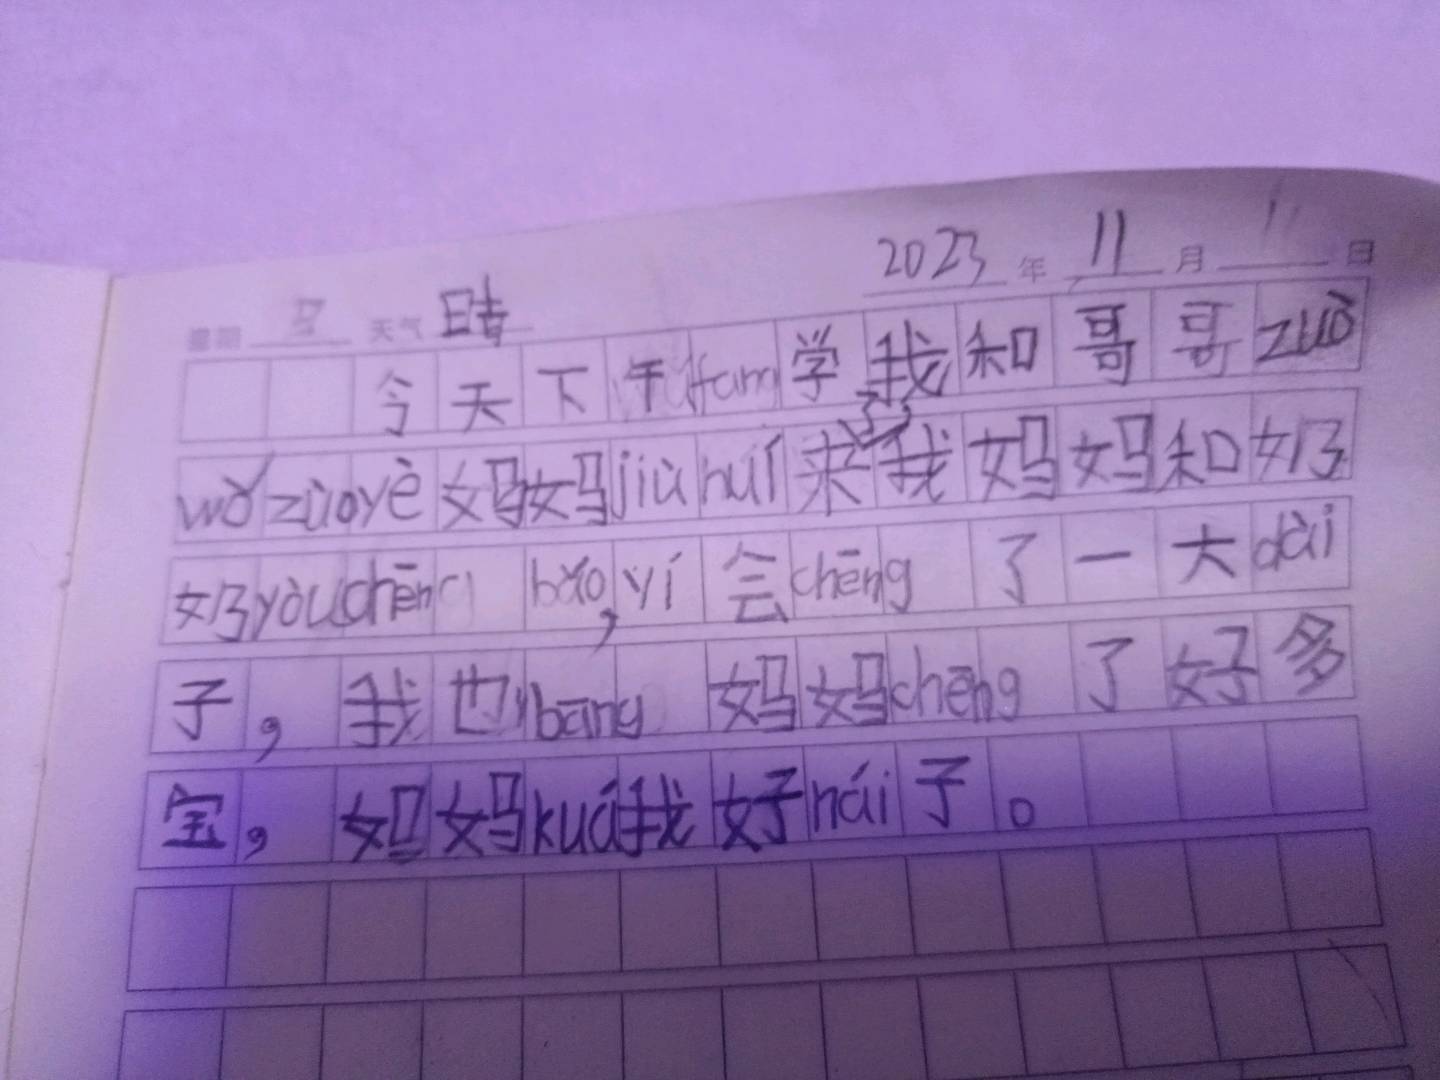 2023 年 11 月 11 日
星期 天气 晴
今天下午fang学我和哥哥zuò
wǒ zuòyè妈妈jiù huí来了我妈妈和奶
奶yòu chēng bāo,yí会chēng了一大dài
子,我也bāng妈妈chēng了好多
宝,妈妈kuá我好hái子。